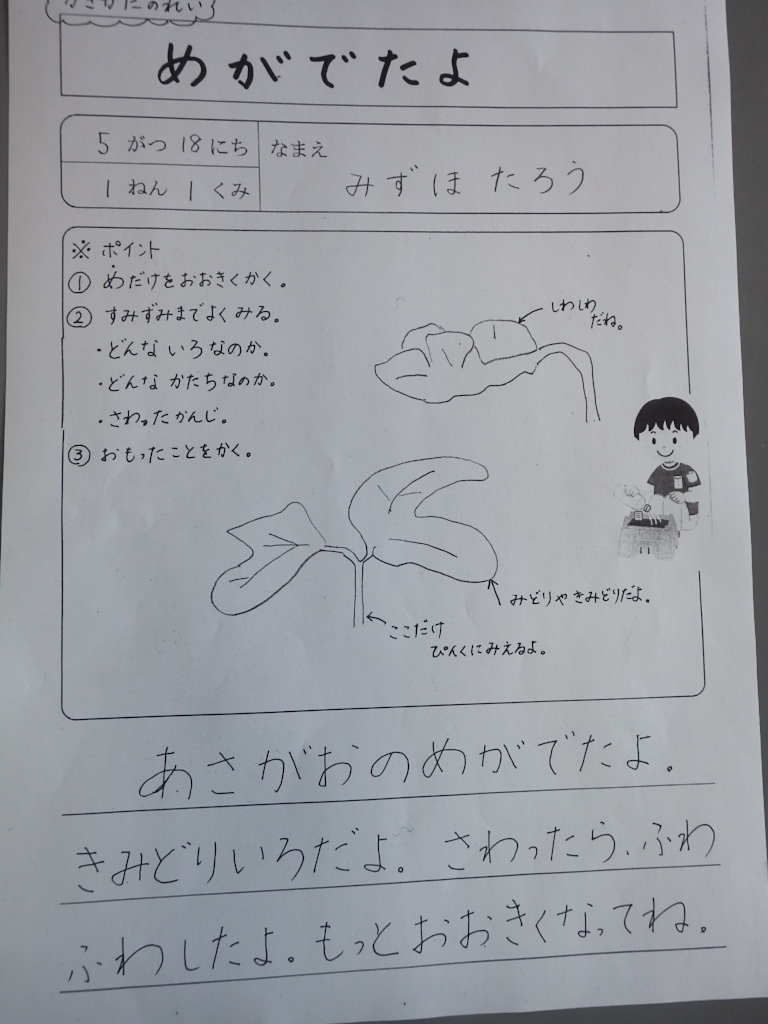 かきかたのれい
めがでたよ
5 がつ 18 にち
なまえ
1 ねん 1 くみ
みずほ たろう
※ ポイント
① めだけをおおきくかく。
② すみずみまでよくみる。
・どんな いろなのか。
・どんな かたちなのか。
・さわったかんじ。
③ おもったことをかく。
しわしわ
だね。
みどりや きみどりだよ。
ここだけ
ぴんくにみえるよ。
あさがおのめがでたよ。
きみどりいろだよ。さわったら、ふわ
ふわしたよ。もっとおおきくなってね。